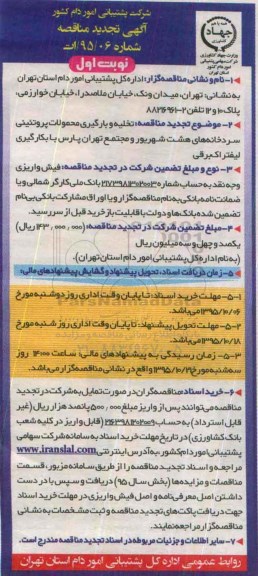 جهاد
وزارت جهاد کشاورزی
شرکت پشتیبانی امور دام کشور
آگهی تجدید مناقصه
شماره ۹۵/۰۶/ت
نوبت اول
۱- نام و نشانی مناقصه‌گزار: اداره کل پشتیبانی امور دام استان تهران
به نشانی: تهران، میدان ونک، خیابان ملاصدرا، خیابان خوارزمی،
پلاک ۱۰ و ۱۲ تلفن: ۲-۸۸۲۱۶۹۶۱
۲- موضوع تجدید مناقصه: تخلیه و بارگیری محمولات پروتئینی
سردخانه‌های هشت شهریور و مجتمع تهران پارس با بکارگیری
نفراتکم پرکی
۳- نوع و مبلغ تضمین شرکت در تجدید مناقصه: فیش واریزی
وجه نقد به حساب شماره بانک ملی کارگر شمالی و یا
ضمانت نامه بانکی به نام مناقصه‌گزار و یا اوراق مشارکت بانکی بی‌نام
تضمین شده بانک‌ها و دولت با قابلیت بازخرید قبل از سررسید.
۴- مبلغ تضمین شرکت در تجدید مناقصه: (۱۴۳,۰۰۰,۰۰۰ ریال)
یکصد و چهل و سه میلیون ریال
(به نام اداره کل پشتیبانی امور دام استان تهران)
۵- زمان دریافت اسناد، تحویل پیشنهاد و گشایش پیشنهادهای مالی:
۵-۱- مهلت خرید اسناد: تا پایان وقت اداری روز دوشنبه مورخ
۱۳۹۵/۱۰/۰۶ می‌باشد.
۵-۲- مهلت تحویل پیشنهاد: تا پایان وقت اداری روز شنبه مورخ
۱۳۹۵/۱۰/۱۸ می‌باشد.
۵-۳- زمان رسیدگی به پیشنهادهای مالی: ساعت ۱۴:۰۰ روز
سه‌شنبه مورخ ۱۳۹۵/۱۰/۲۱ واقع در نشانی مناقصه‌گزار می‌باشد.
۶- خرید اسناد: مناقصه‌گران در صورت تمایل به شرکت در تجدید
مناقصه می‌توانند پس از واریز مبلغ ۵۰۰,۰۰۰ پانصد هزار ریال (غیر
قابل استرداد) به حساب (قابل واریز در کلیه شعب
بانک کشاورزی) در تاریخ مهلت خرید اسناد به سامانه شرکت سهامی
پشتیبانی امور دام کشور به آدرس اینترنتی www.iranslal.com
مراجعه و اسناد تجدید مناقصه را از طریق سامانه مزبور، قسمت
مناقصات و مزایده‌ها (بخش سال ۹۵) دریافت و سپس با در دست
داشتن اصل معرفی‌نامه و اصل فیش واریزی در مهلت خرید اسناد
جهت دریافت پاکت‌های تجدید مناقصه و ثبت مشخصات به نشانی
مناقصه‌گزار مراجعه نمایند.
۷- سایر اطلاعات و جزئیات مربوطه در اسناد تجدید مناقصه مندرج است.
روابط عمومی اداره کل پشتیبانی امور دام استان تهران